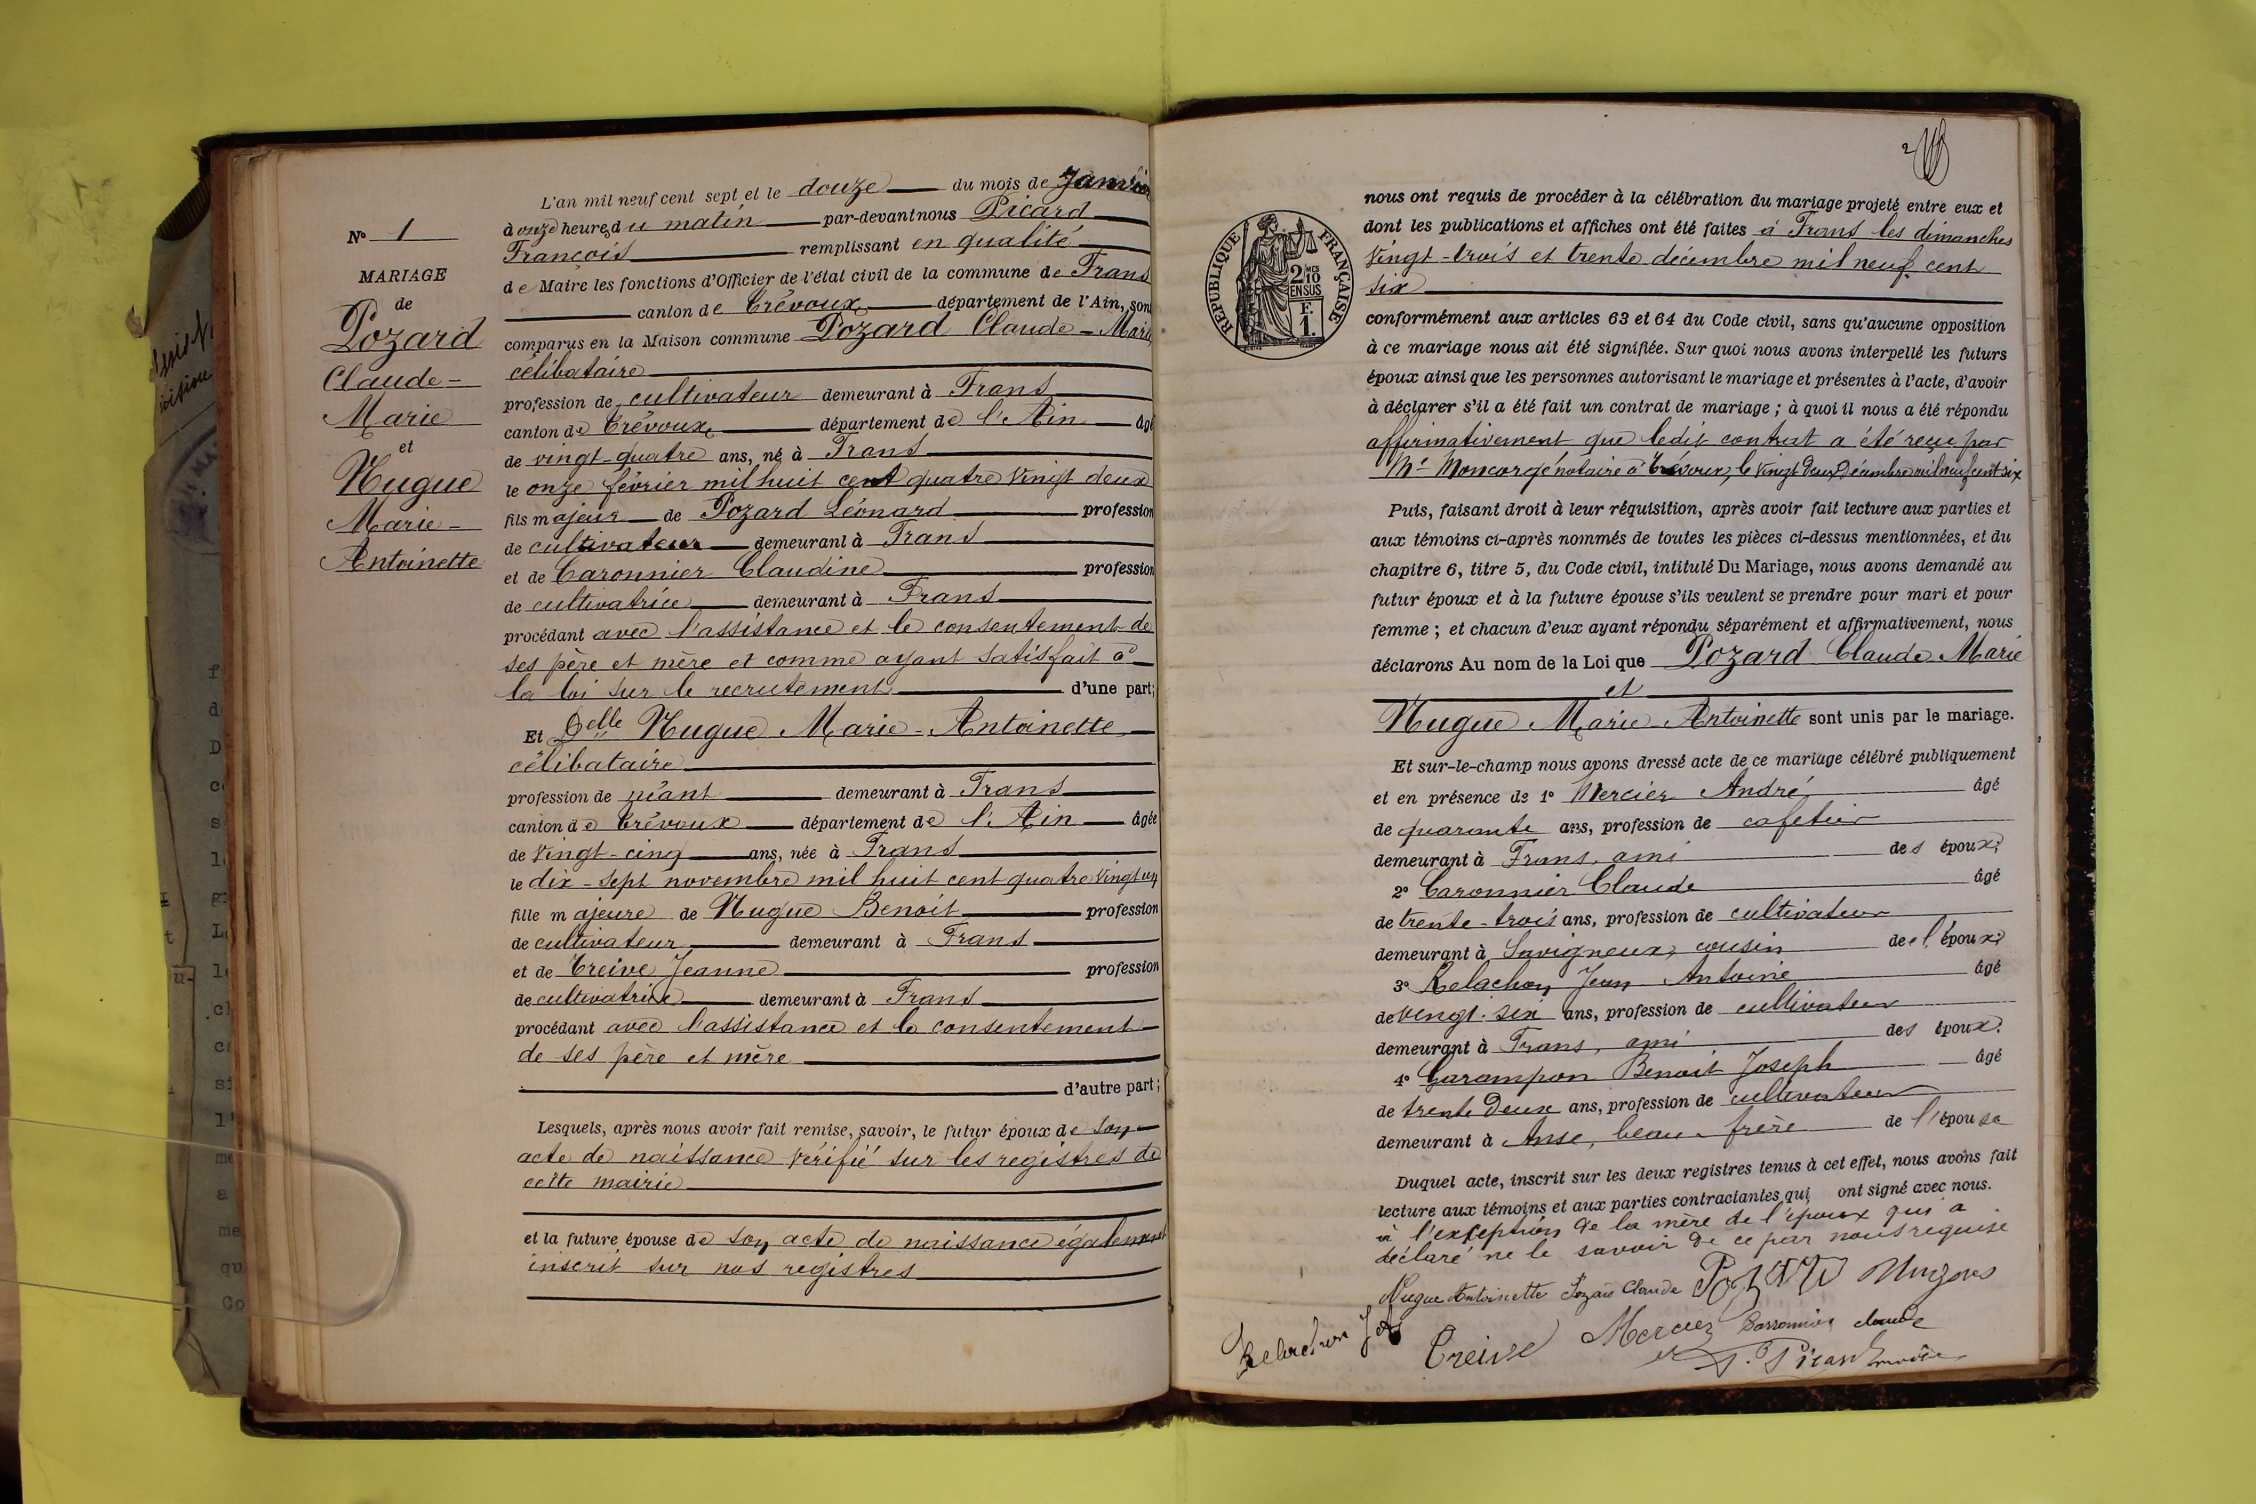 N° 1
MARIAGE
de
Pozard
Claude-
Marie
et
Nugue
Marie-
Antoinette
L'an mil neuf cent sept et le douze du mois de Janvier
à onze heures du matin par-devant nous Picard
François remplissant en qualité
de Maire les fonctions d'Officier de l'état civil de la commune de Frans
canton de Trévoux département de l'Ain, sont
comparus en la Maison commune Pozard Claude-Marie
célibataire
profession de cultivateur demeurant à Frans
canton de Trévoux département de l'Ain âgé
de vingt-quatre ans, né à Frans
le onze février mil huit cent quatre vingt deux
fils majeur de Pozard Léonard profession
de cultivateur demeurant à Frans
et de Caronnier Claudine profession
de cultivatrice demeurant à Frans
procédant avec l'assistance et le consentement de
ses père et mère et comme ayant satisfait à
la loi sur le recrutement d'une part;
Et Delle Nugue Marie-Antoinette
célibataire
profession de néant demeurant à Frans
canton de Trévoux département de l'Ain âgée
de vingt-cinq ans, née à Frans
le dix-sept novembre mil huit cent quatre vingt un
fille majeure de Nugue Benoit profession
de cultivateur demeurant à Frans
et de Treive Jeanne profession
de cultivatrice demeurant à Frans
procédant avec l'assistance et le consentement
de ses père et mère
d'autre part;
Lesquels, après nous avoir fait remise, savoir, le futur époux de son
acte de naissance vérifié sur les registres de
cette mairie
et la future épouse de son acte de naissance également
inscrit sur nos registres
2
RÉPUBLIQUE FRANÇAISE
2 MES
10
EN SUS
F.
1.
nous ont requis de procéder à la célébration du mariage projeté entre eux et
dont les publications et affiches ont été faites à Frans les dimanches
vingt-trois et trente décembre mil neuf cent
six
conformément aux articles 63 et 64 du Code civil, sans qu'aucune opposition
à ce mariage nous ait été signifiée. Sur quoi nous avons interpellé les futurs
époux ainsi que les personnes autorisant le mariage et présentes à l'acte, d'avoir
à déclarer s'il a été fait un contrat de mariage; à quoi il nous a été répondu
affirmativement que ledit contrat a été reçu par
Me Moncorgé notaire à Trévoux, le vingt deux Décembre mil neuf cent six
Puis, faisant droit à leur réquisition, après avoir fait lecture aux parties et
aux témoins ci-après nommés de toutes les pièces ci-dessus mentionnées, et du
chapitre 6, titre 5, du Code civil, intitulé Du Mariage, nous avons demandé au
futur époux et à la future épouse s'ils veulent se prendre pour mari et pour
femme; et chacun d'eux ayant répondu séparément et affirmativement, nous
déclarons Au nom de la Loi que Pozard Claude Marie
et
Nugue Marie-Antoinette sont unis par le mariage.
Et sur-le-champ nous avons dressé acte de ce mariage célébré publiquement
et en présence de 1° Mercier André âgé
de quarante ans, profession de cafetier
demeurant à Frans, ami des époux;
2° Caronnier Claude âgé
de trente-trois ans, profession de cultivateur
demeurant à Savigneux, cousin de l'époux;
3° Relachon Jean Antoine âgé
de vingt-six ans, profession de cultivateur
demeurant à Frans, ami des époux.
4° Garampon Benoit Joseph âgé
de trente deux ans, profession de cultivateur
demeurant à Anse, beau-frère de l'épouse
Duquel acte, inscrit sur les deux registres tenus à cet effet, nous avons fait
lecture aux témoins et aux parties contractantes qui ont signé avec nous.
à l'exception de la mère de l'époux qui a
déclaré ne le savoir de ce par nous requise
Nugue Antoinette Pozard Claude Pozard
Relachon Treive Mercier Caronnier claude
F. Picard maire